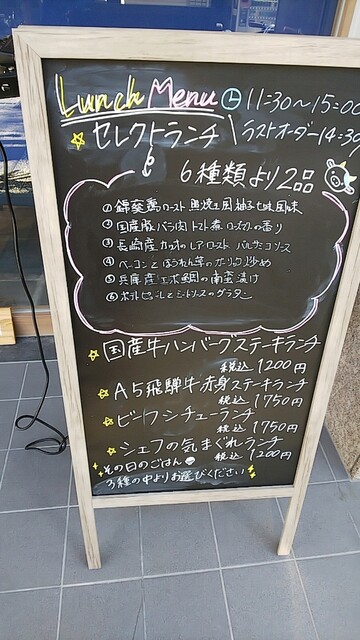 Lunch Menu 11:30〜15:00
☆セレクトランチ \ラストオーダー14:30
6種類より2品
① 錦爽鶏ロースト 照焼き風 柚子七味風味
② 国産豚バラ肉トマト煮 ローズマリーの香り
③ 長崎産カツオのレアロースト バルサミコソース
④ ベーコンとほうれん草のガーリック炒め
⑤ 兵庫産エボ鯛の南蛮漬け
⑥ ポテトピューレとミートソースのグラタン
☆国産牛ハンバーグステーキランチ
税込 1200円
☆A5飛騨牛赤身ステーキランチ
税込 1750円
☆ビーフシチューランチ
税込 1750円
☆シェフの気まぐれランチ
税込 1200円
その日のごはん
3種の中よりお選びください